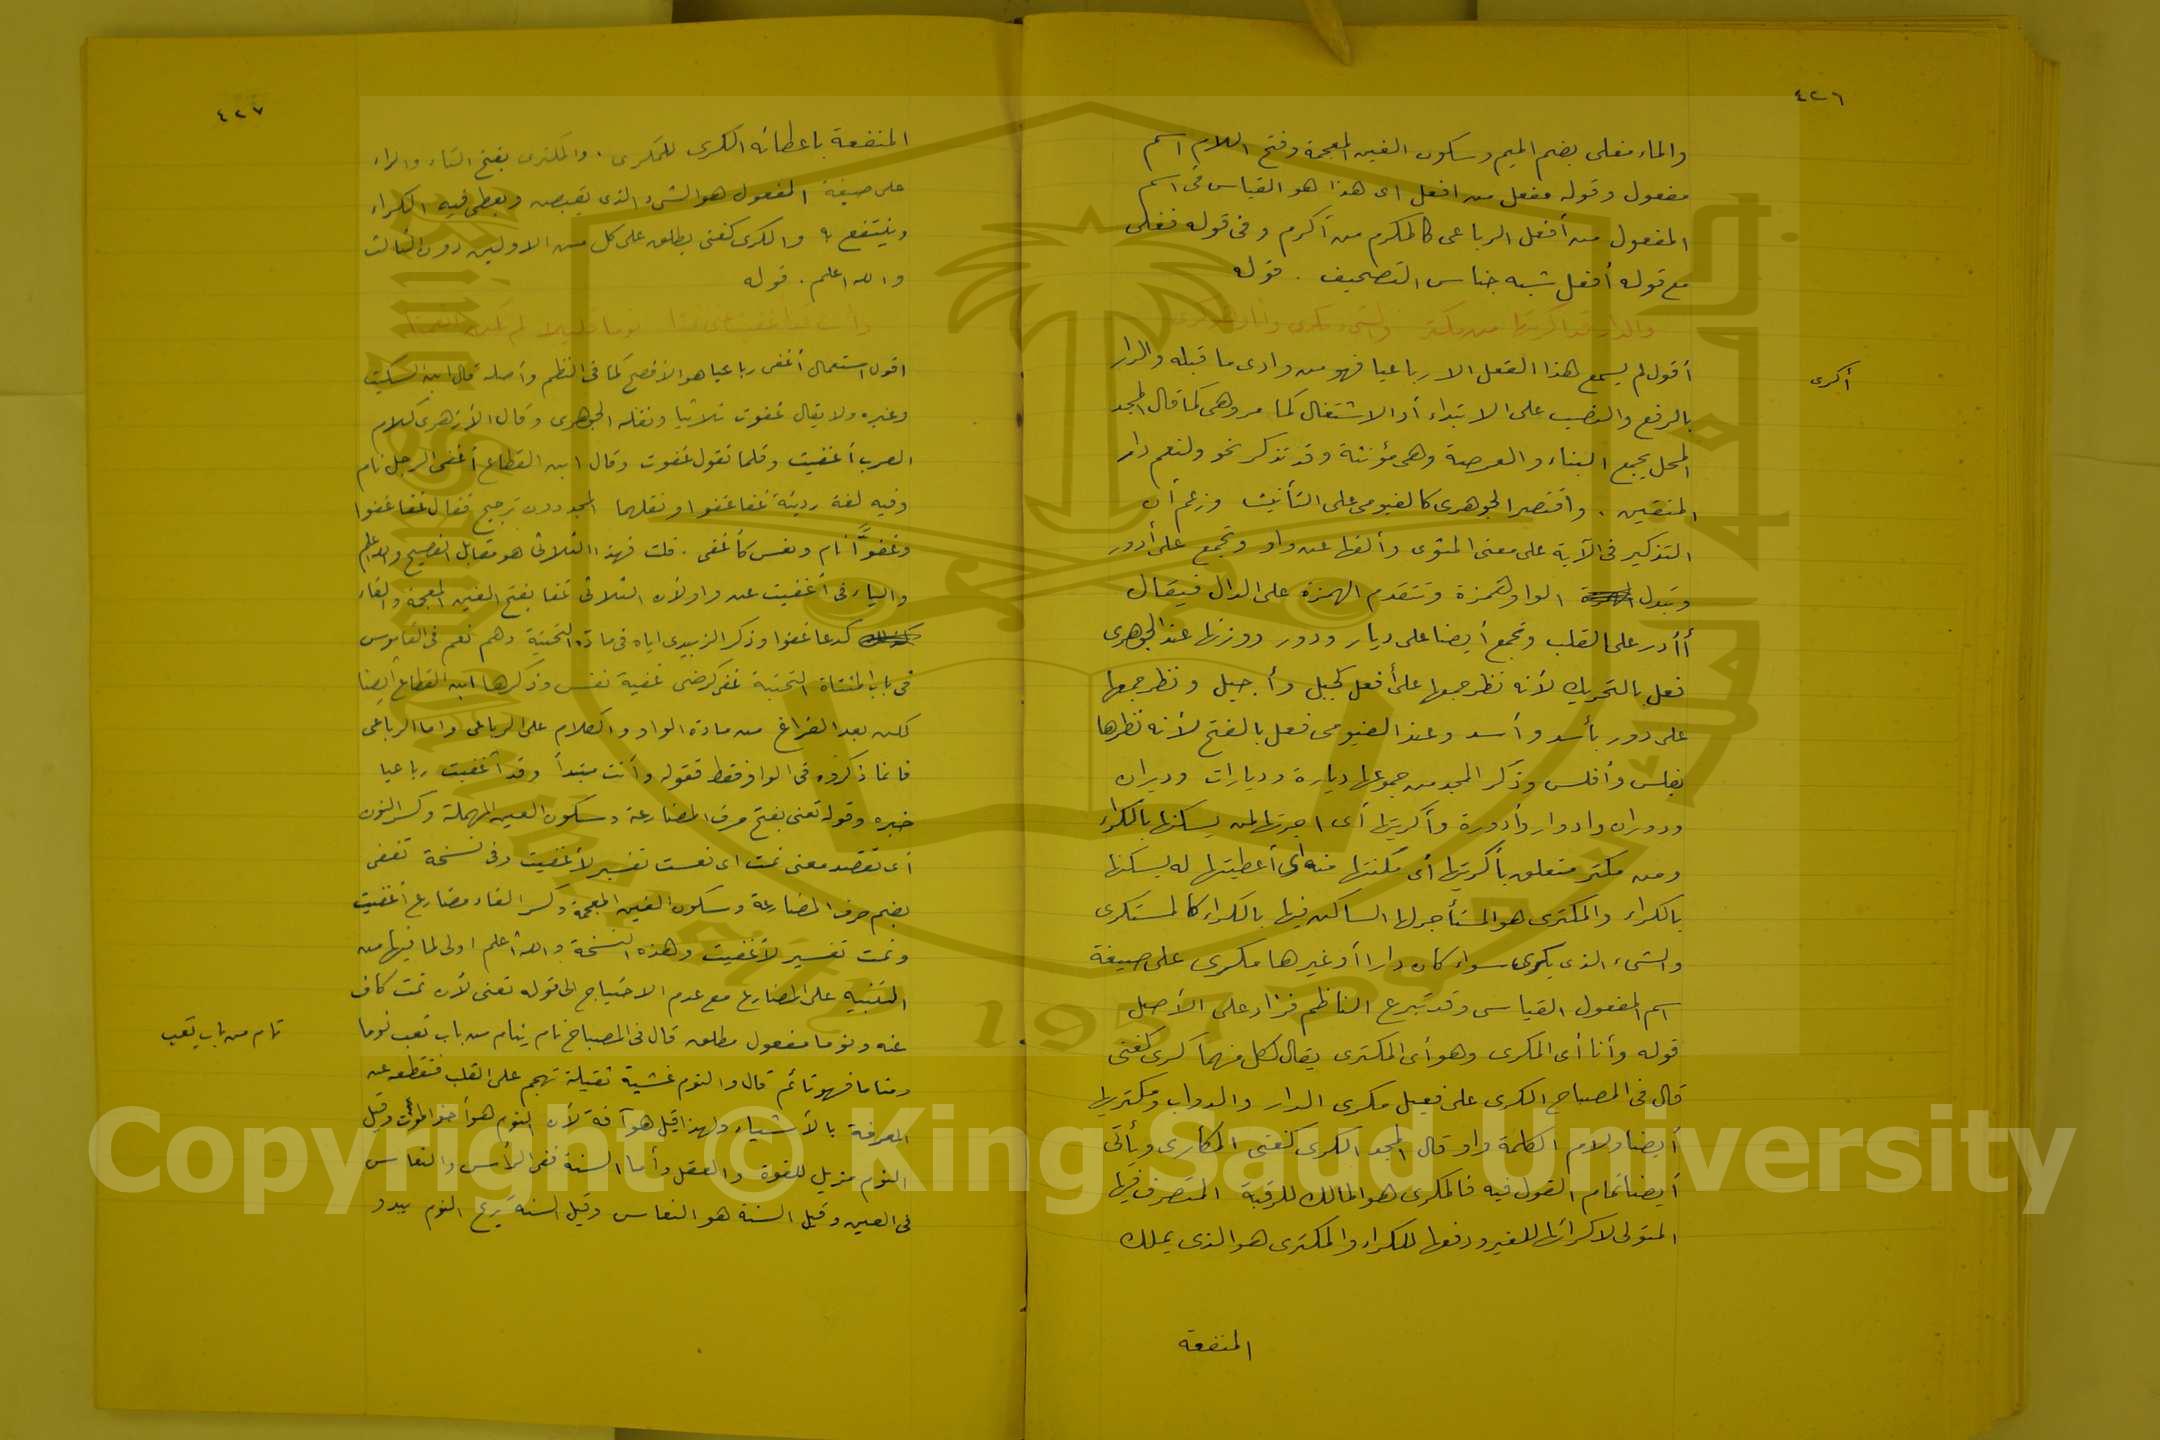 ٤٢٦
والماء مغلى بضم الميم وسكون الغين المعجمة وفتح اللام اسم
مفعول وقوله مفعل من افعل اى هذا هو القياس فى اسم
المفعول من أفعل الرباعى كالمكرم من أكرم وفى قوله فغلى
مع قوله أفعل شبه جناس التصحيف . قوله
والدار قد اكريتها من مكتر والشىء مكرى وأنا المكرى
أكرى
أقول لم يسمع هذا الفعل الا رباعيا فهو من وادى ما قبله والدار
بالرفع والنصب على الابتداء أو الاشتغال كما مر وهى كما قال المجد
المحل يجمع البناء والعرصة وهى مؤنثة وقد تذكر نحو ولنعم دار
المتقين . واقتصر الجوهرى كالفيومى على التأنيث وزعم أن
التذكير فى الآية على معنى المثوى وألفها عن واو وتجمع على أدور
وتبدل الواو همزة وتتقدم الهمزة على الدال فيقال
أأدر على القلب وتجمع أيضا على ديار ودور ووزنها عند الجوهرى
فعل بالتحريك لأنه نظر جمعها على أفعل كجبل وأجبل ونظر جمعها
على دور بأسد وأسد وعند الفيومى فعل بالفتح لأنه نظرها
بفلس وأفلس وذكر المجد من جموعها ديارة وديارات وديران
ودوران وادوار وأدورة وأكريتها أى اجرتها لمن يسكنها بالكراء
ومن مكتر متعلق بأكريتها أى مكنتها منه أى أعطيتها له يسكنها
بالكراء والمكترى هو المستأجر لها الساكن فيها بالكراء كالمستكرى
والشىء الذى يكرى سواء كان دارا أو غيرها مكرى على صيغة
اسم المفعول القياسى وقد تبرع الناظم فزاد على الأصل
قوله وأنا أى المكرى وهو أى المكترى يقال لكل منهما كرى كغنى
قال فى المصباح الكرى على فعيل مكرى الدار والدواب ومكتريها
أيضا ولام الكلمة واو قال المجد الكرى كغنى المكارى ويأتى
أيضا تمام القول فيه فالمكرى هو المالك للرقبة المتصرف فيها
المتولى لاكرائها للغير ودفعها للكراء والمكترى هو الذى يملك
المنفعة
٤٢٧
المنفعة باعطائه الكرى للمكرى . والمكترى بفتح التاء والراء
على صيغة المفعول هو الشىء الذى يقبضه ويعطى فيه الكراء
وينتفع به والكرى كغنى يطلق على كل من الاولين دون الثالث
والله اعلم . قوله
وأنت قد أغفيت نوما قليلا
اقول استعمال أغفى رباعيا هو الأفصح كما فى النظم وأصله قال ابن السكيت
وغيره ولا يقال غفوت ثلاثيا ونقله الجوهرى وقال الأزهرى كلام
العرب أغفيت وقلما تقول غفوت وقال ابن القطاع أغفى الرجل نام
وفيه لغة رديئة غفا غفوا ونقلهما المجد دون ترجيح فقال غفا غفوا
وغفوًّا نام ونعس كأغفى . قلت فهذا الثلاثى هو مقابل الفصيح والله اعلم
والياء فى أغفيت عن واو لأن الثلاثى غفا بفتح الغين المعجمة والفاء
كدعا غفوا وذكر الزبيدى اياه فى مادة التحتية وهم نعم فى القاموس
فى باب المثناة التحتية غفى كرضى غفية نعس وذكرها ابن القطاع أيضا
لكن بعد الفراغ من مادة الواو والكلام على الرباعى واما الرباعى
فانما ذكروه فى الواو فقط فقوله وأنت مبتدأ وقد أغفيت رباعيا
خبره وقوله تعنى بفتح حرف المضارعة وسكون العين المهملة وكسر النون
أى تقصد معنى نمت اى نعست تفسير لأغفيت وفى نسخة تغفى
بضم حرف المضارعة وسكون الغين المعجمة وكسر الفاء مضارع أغفيت
ونمت تفسير لأغفيت وهذه النسخة والله أعلم اولى لما فيها من
التنبيه على المضارع مع عدم الاحتياج الى قوله تعنى لأن نمت كاف
عنه ونوما مفعول مطلق قال فى المصباح نام ينام من باب تعب نوما
نام من باب تعب
ومناما فهو نائم قال والنوم غشية ثقيلة تهجم على القلب فتقطعه عن
المعرفة بالأشياء ولهذا قيل هو آفة لأن النوم هو أخو الموت وقيل
النوم مزيل للقوة والعقل وأما السنة ففى الرأس والنعاس
فى العين وقيل السنة هو النعاس وقيل السنة ريح النوم يبدو
Copyright © King Saud University
1957